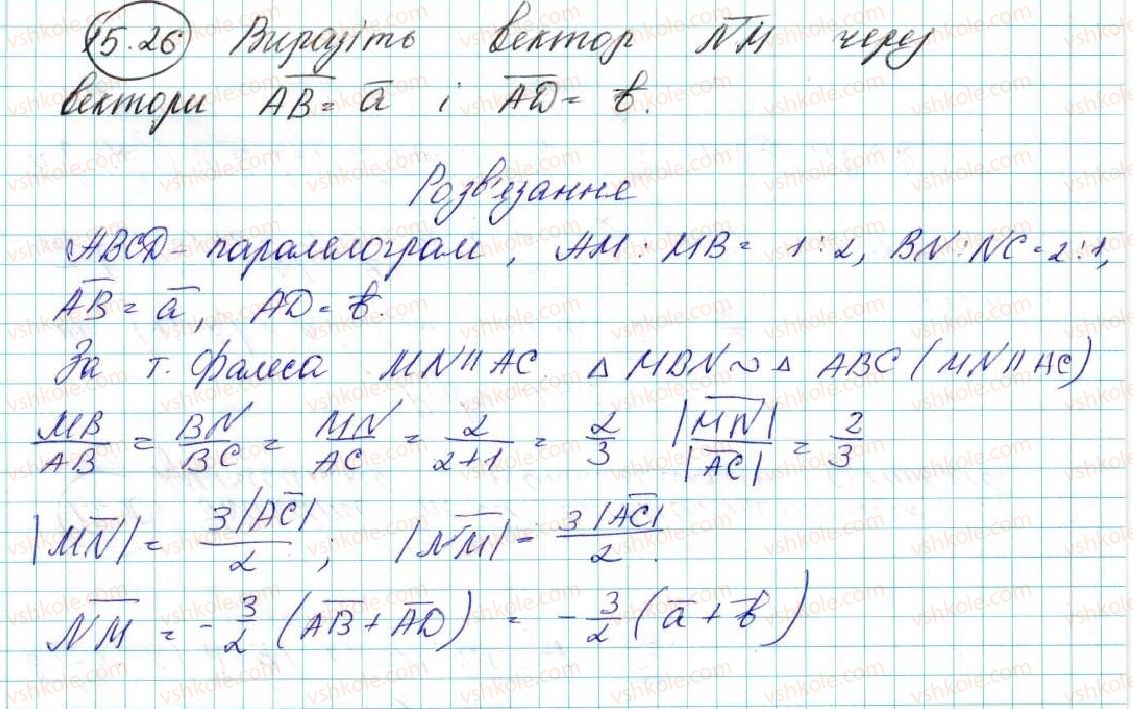 15.26 Виразіть вектор N̅M̅ через
вектори A̅B̅ = a̅ і A̅D̅ = b̅.
Розв'язання
ABCD - паралелограм, AM : MB = 1 : 2, BN : NC = 2 : 1,
A̅B̅ = a̅, AD = b̅.
За т. Фалеса MN || AC. Δ MBN ~ Δ ABC (MN || AC)
MB/AB = BN/BC = MN/AC = 2/(2+1) = 2/3 |M̅N̅|/|A̅C̅| = 2/3
|M̅N̅| = 3|A̅C̅|/2 ; |N̅M̅| = 3|A̅C̅|/2.
N̅M̅ = - 3/2 (A̅B̅ + A̅D̅) = - 3/2 (a̅ + b̅)